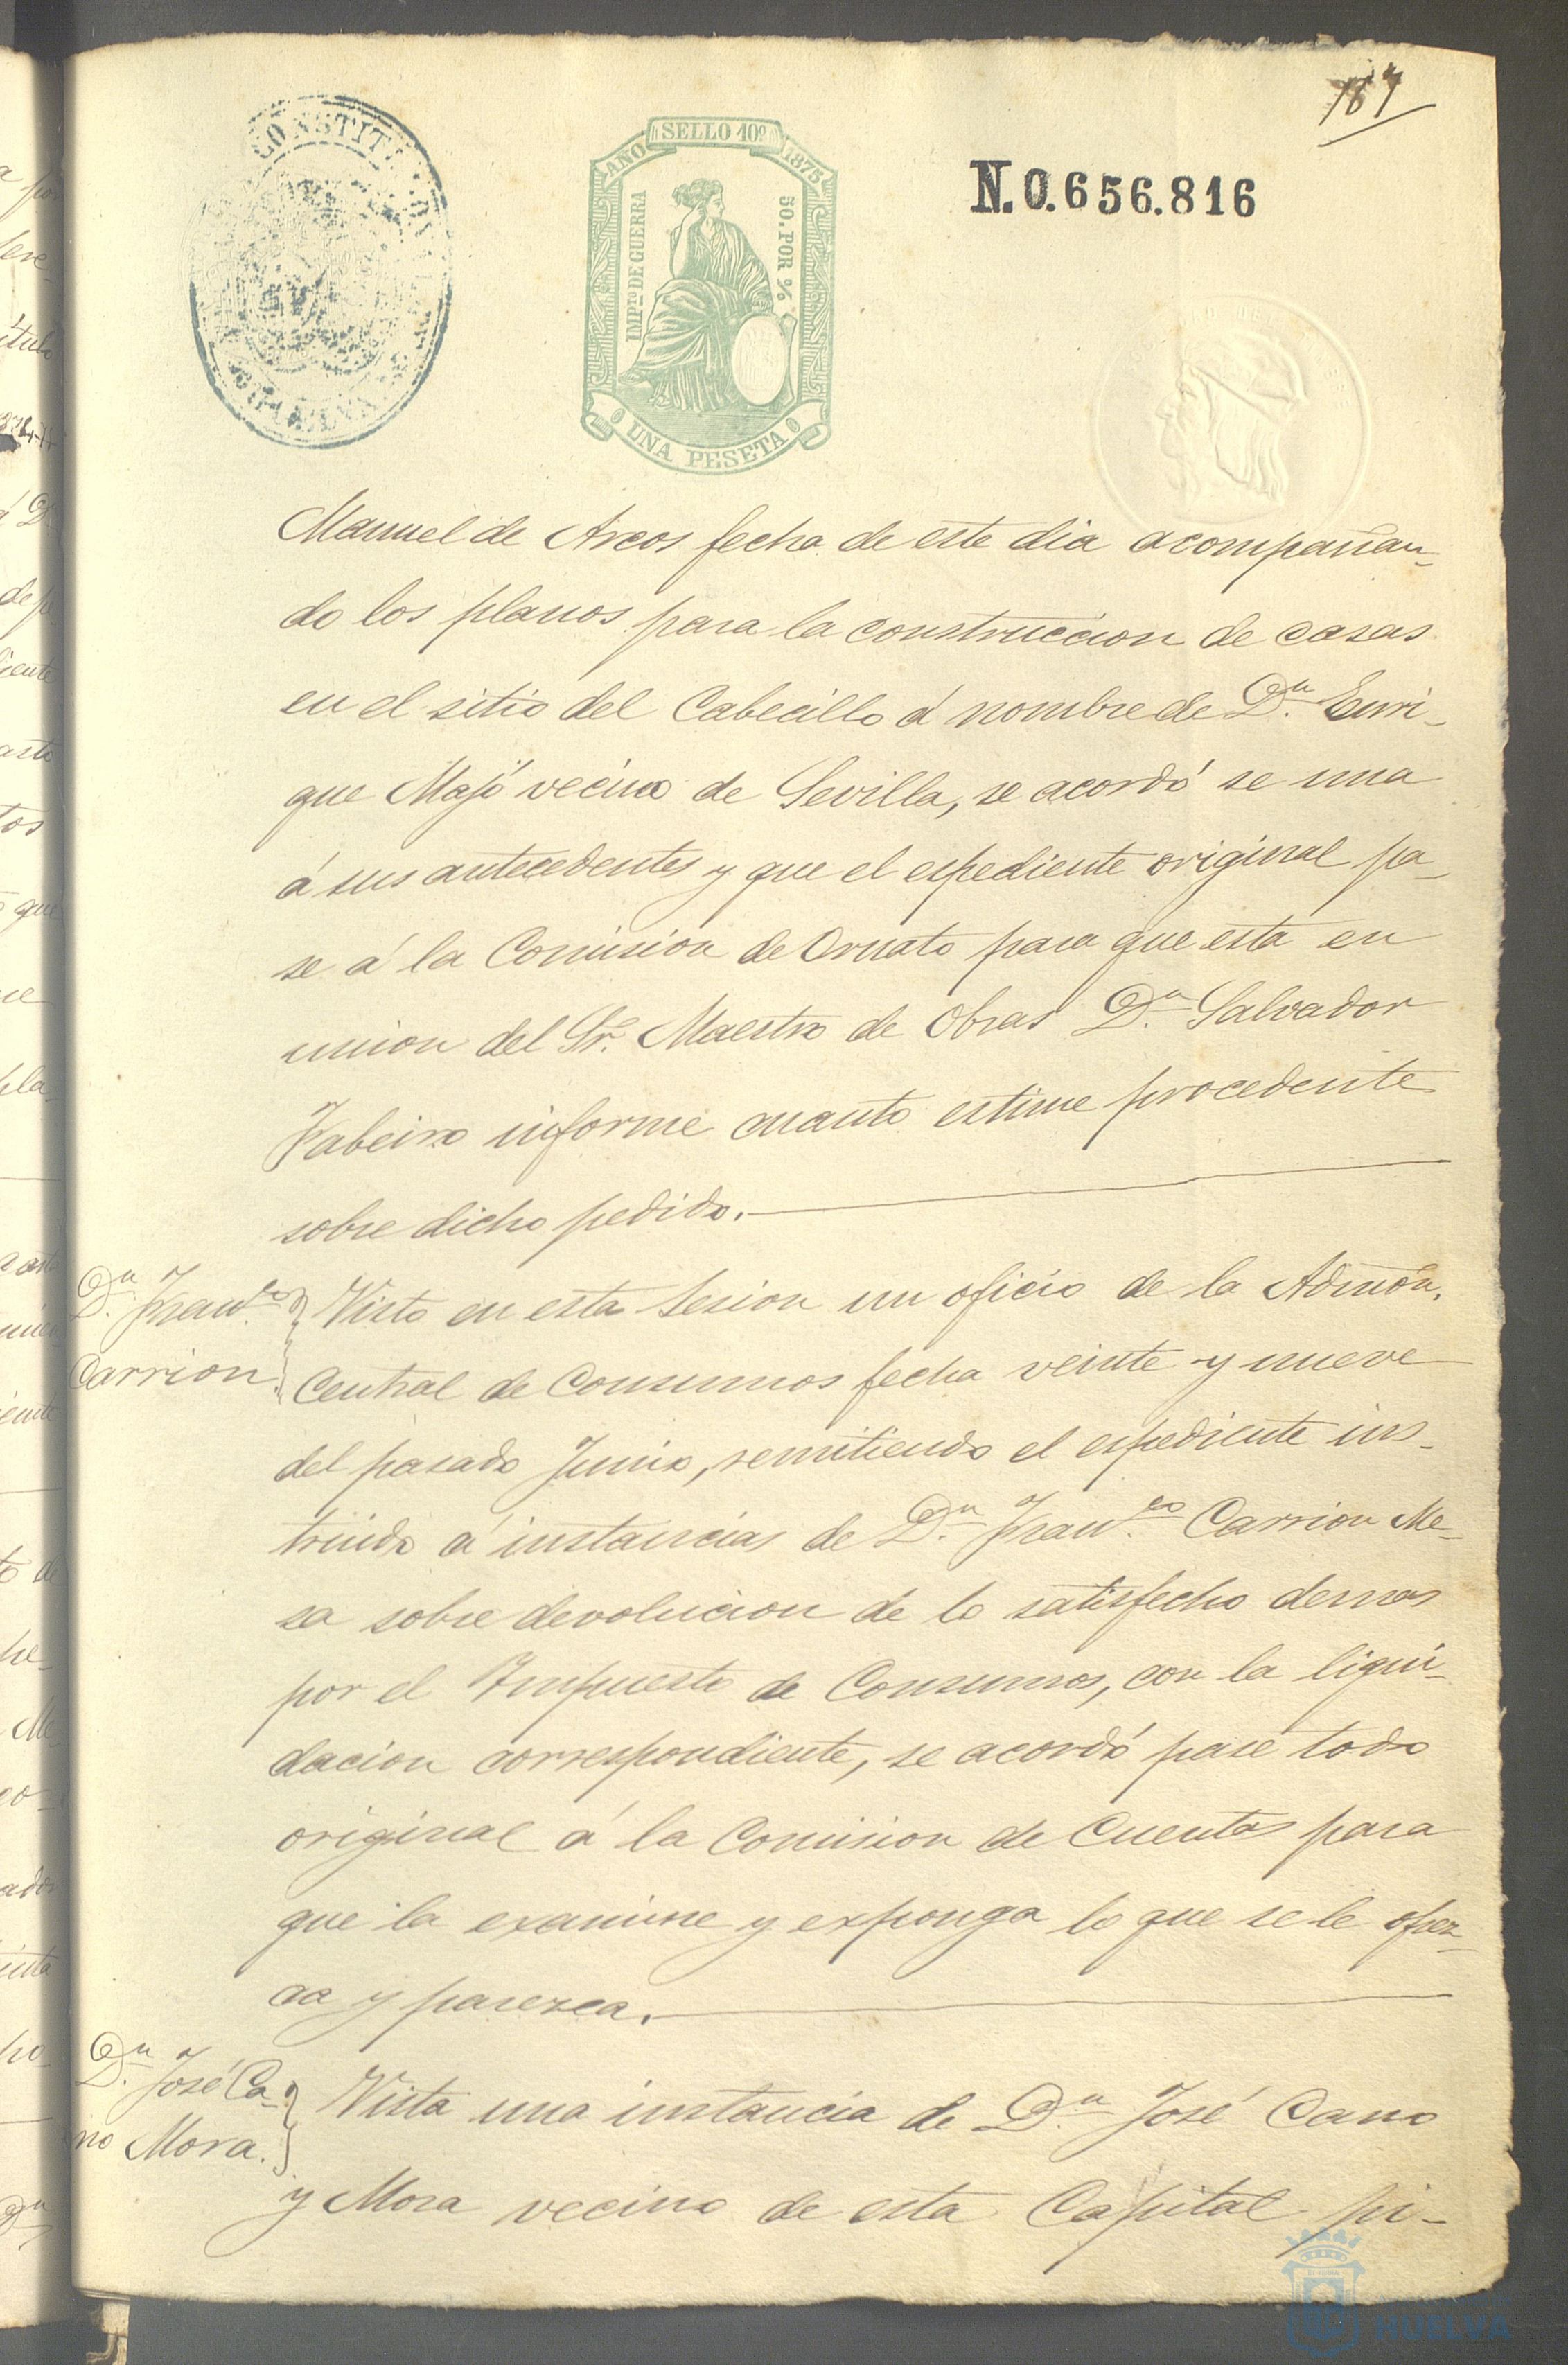 187
CONSTIT
HUELVA
AÑO SELLO 10º 1875
IMP.TO DE GUERRA
50. POR %
UNA PESETA
N.0.656.816
Manuel de Arcos fecha de este dia acompañan-
do los planos para la construccion de casas
en el sitio del Cabecillo á nombre de D.n Enri-
que Majó vecino de Sevilla, se acordó se una
á sus antecedentes y que el espediente original pa-
se á la Comision de Ornato para que esta en
union del Sr. Maestro de Obras D.n Salvador
Fabeiro informe cuanto estime procedente
sobre dicho pedido.
D.n Fran.co
Carrion.
Visto en esta Sesion un oficio de la Admon.
Central de Consumos fecha veinte y nueve
del pasado Junio, remitiendo el espediente ins-
truido á instancias de D.n Fran.co Carrion Me-
sa sobre devolucion de lo satisfecho demas
por el Impuesto de Consumos, con la liqui-
dacion correspondiente, se acordó pase todo
original á la Comision de Cuentas para
que la examine y exponga lo que se le ofrez-
ca y parezca.
D.n José Ca-
no Mora.
Vista una instancia de D.n José Cano
y Mora vecino de esta Capital pi-
HUELVA